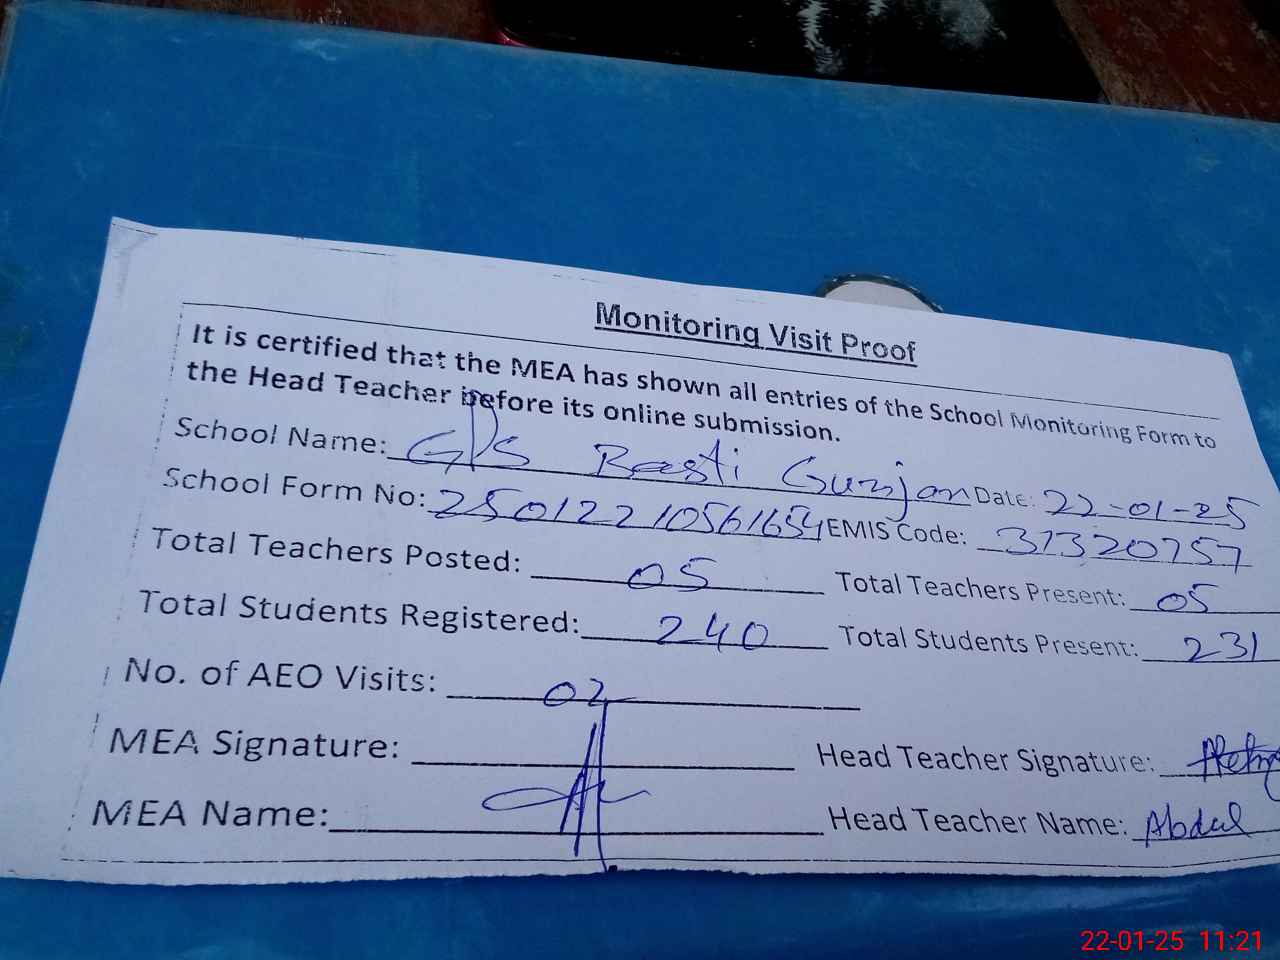 Monitoring Visit Proof
It is certified that the MEA has shown all entries of the School Monitoring Form to
the Head Teacher before its online submission.
School Name: GPS Basti Gurjan Date: 22-01-25
School Form No: 25012210561654 EMIS Code: 31320757
Total Teachers Posted: 05 Total Teachers Present: 05
Total Students Registered: 240 Total Students Present: 231
No. of AEO Visits: 02
MEA Signature: Head Teacher Signature:
MEA Name: Head Teacher Name: Abdul
22-01-25 11:21